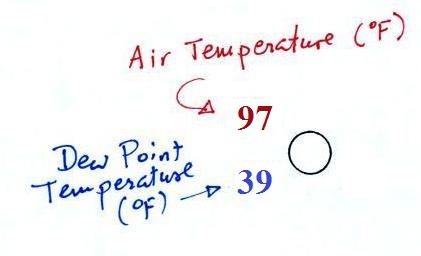 Air Temperature (°F)
97
Dew Point
Temperature
(°F)
39